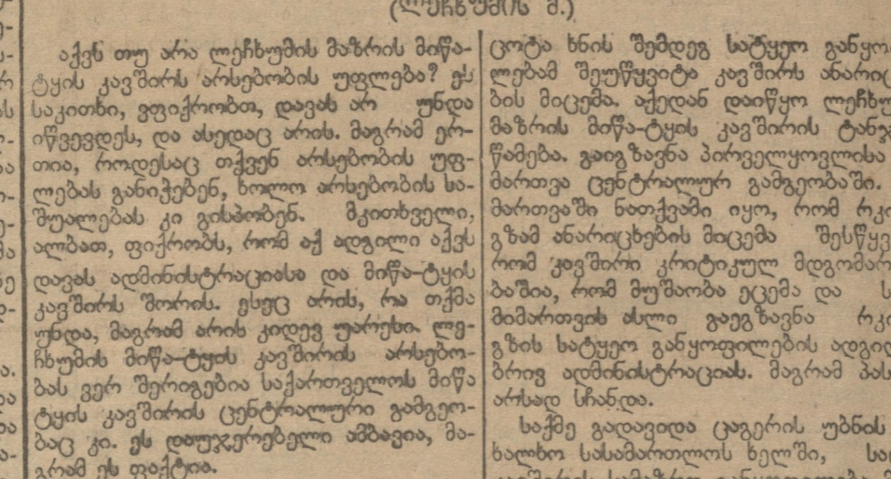 (ლეჩხუმის მ.)
აქვს თუ არა ლეჩხუმის მაზრის მიწა-
ტყის კავშირს არსებობის უფლება? ეს
საკითხი, ვფიქრობთ, დავას არ უნდა
იწვევდეს, და ასედაც არის. მაგრამ ერ-
თია, როდესაც თქვენ არსებობის უფ-
ლებას განიჭებენ, ხოლო არსებობის სა-
შუალებას კი გისპობენ. მკითხველი,
ალბათ, ფიქრობს, რომ აქ ადგილი აქვს
დავას ადმინისტრაციასა და მიწა-ტყის
კავშირს შორის. ესეც არის, რა თქმა
უნდა, მაგრამ არის კიდევ უარესი. ლე-
ჩხუმის მიწა-ტყის კავშირის არსებო-
ბას ვერ შერიგებია საქართველოს მიწა
ტყის კავშირის ცენტრალური გამგეო-
ბაც კი. ეს დაუჯერებელი ამბავია, მა-
გრამ ეს ფაქტია.
ცოტა ხნის შემდეგ სატყეო განყო
ლებამ შეუწყვიტა კავშირს ანარიც
ბის მიცემა. აქედან დაიწყო ლეჩხუ
მაზრის მიწა-ტყის კავშირის ტანჯ
წამება. გაიგზავნა პირველყოვლისა
მართვა ცენტრალურ გამგეობაში.
მართვაში ნათქვამი იყო, რომ რკი
გზამ ანარიცხების მიცემა შესწყვე
რომ კავშირი კრიტიკულ მდგომარ
ბაშია, რომ მუშაობა ეცემა და
მიმართვის ასლი გაეგზავნა რკი
გზის სატყეო განყოფილების ადგილ
ბრივ ადმინისტრაციას. მაგრამ პას
არსად სჩანდა.
საქმე გადავიდა ცაგერის უბნის
სახალხო სასამართლოს ხელში,